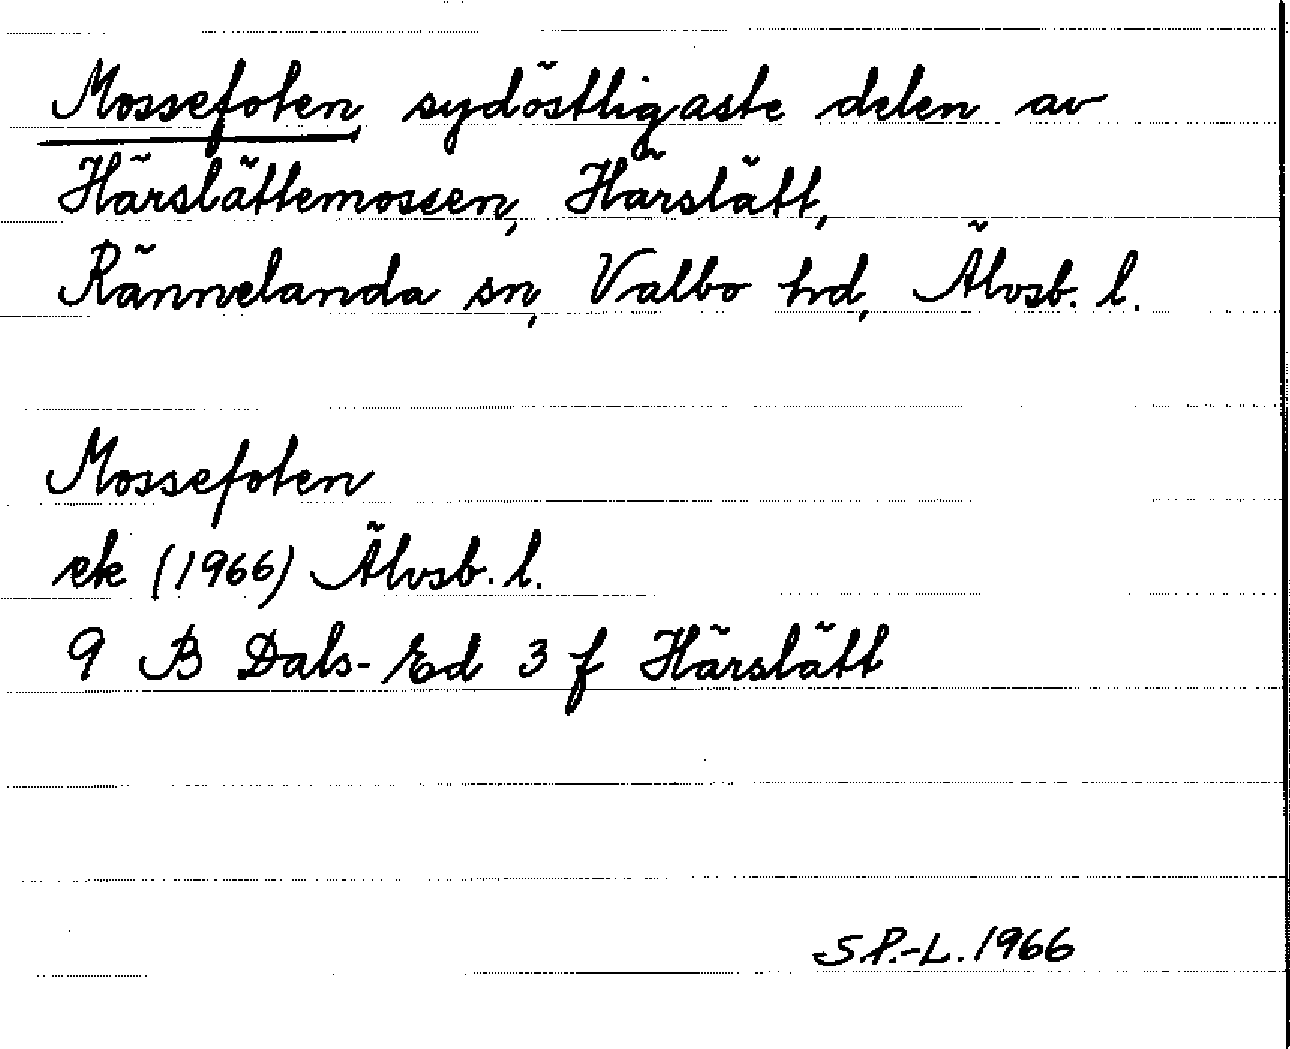 Mossefoten, sydöstligaste delen av
Härslättemossen, Härslätt,
Rännelanda sn, Valbo hd, Älvsb. l.
Mossefoten
ek (1966) Älvsb. l.
9 B Dals-Ed 3 f Härslätt
S.P.-L. 1966